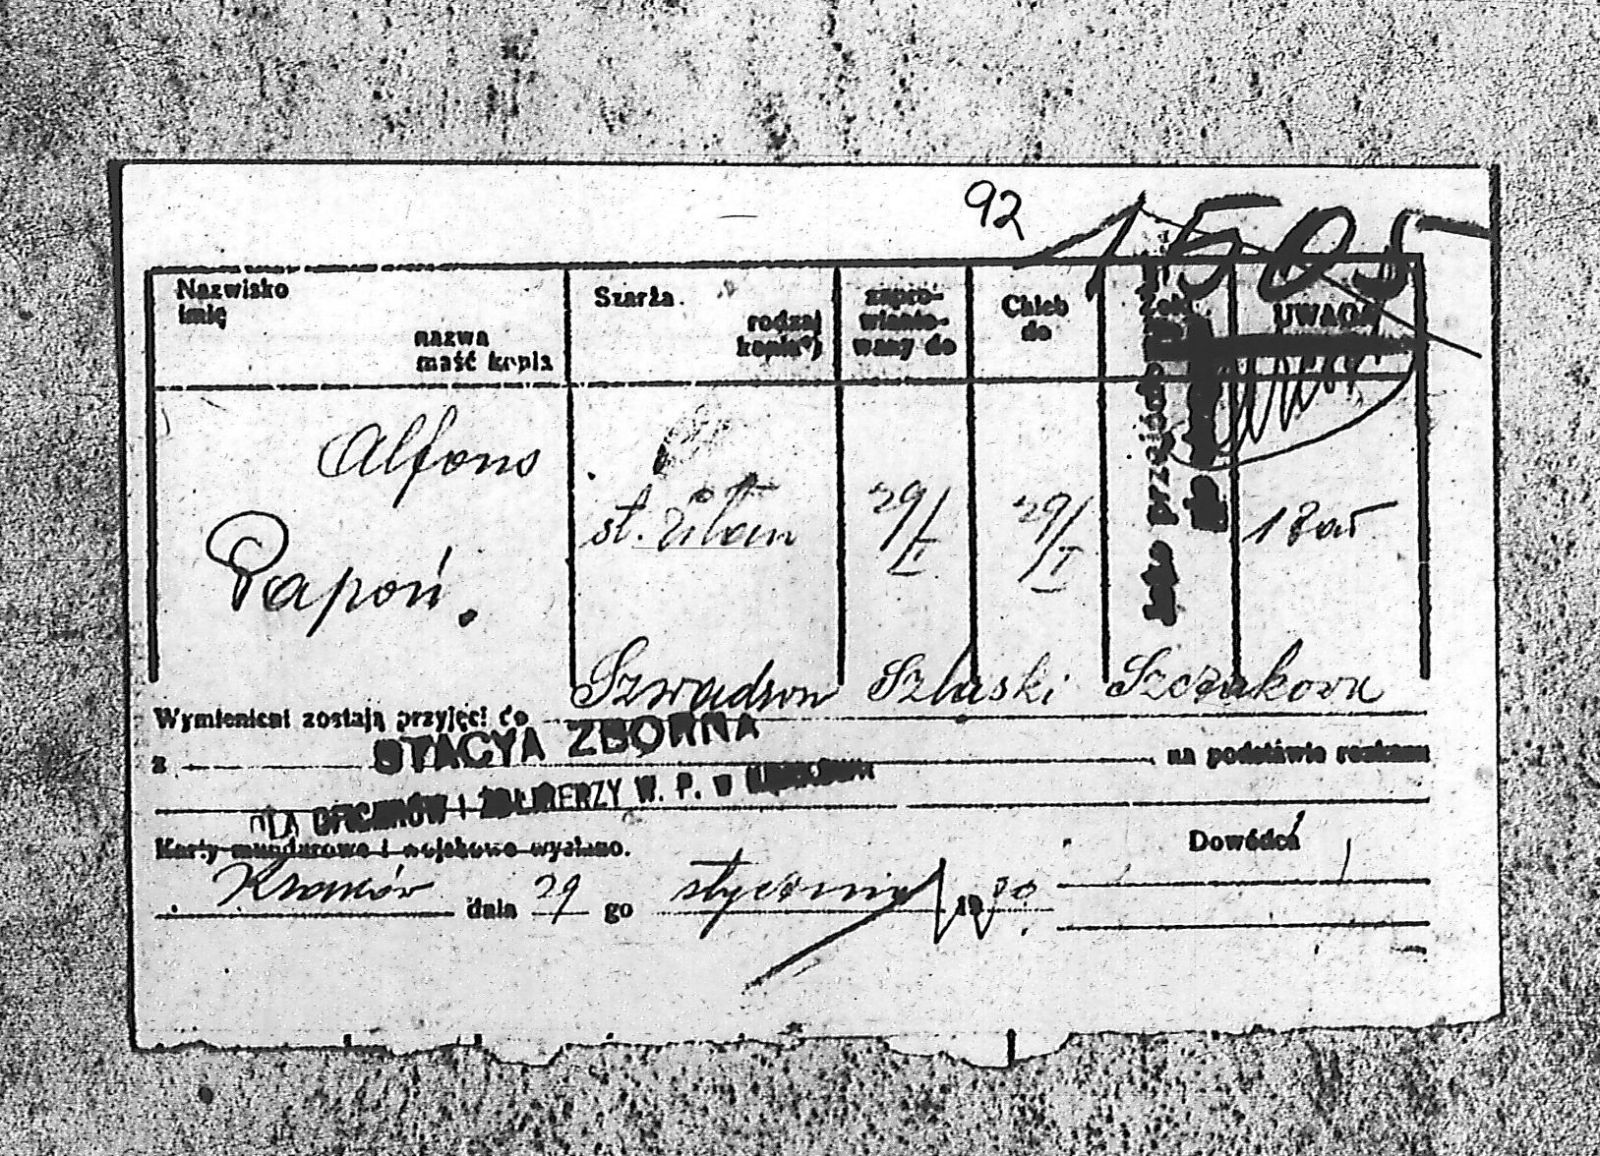 92 1505
Nazwisko
imię
nazwa
maść konia
Szarża
rodzaj
konia*)
zapro-
wianto-
wany do
Chleb
do
Żołd
UWAGA
Alfons
Papoń.
st. ułan
29/I
29/I
1 zał
Szwadron Szląski Szczakowa
Wymienieni zostają przyjęci do
STACYA ZBORNA
z na podstawie rozkazu
DLA OFICERÓW I ŻOŁNIERZY W. P. w KRAKOWIE
Karty mundurowe i wojskowe wysłano.
Dowódca
Kraków dnia 29 go stycznia 1920.